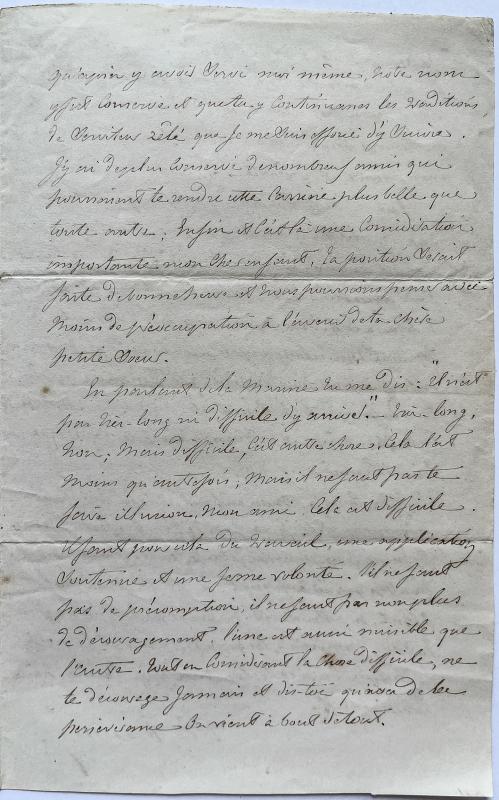 qu'après y avoir servi moi même, notre nom
y fut conservé et que tu y continuasses les traditions
de serviteur zélé que je me suis efforcé d'y suivre.
J'y ai de plus conservé de nombreux amis qui
pourraient te rendre cette carrière plus belle que
toute autre. Enfin et c'est là une considération
importante mon cher enfant, ta position serait
faite de bonne heure et nous pourrions penser avec
moins de préoccupation à l'avenir de ta chère
petite soeur.
En parlant de la Marine tu me dis: "il n'est
pas très-long ni difficile d'y arriver." - très-long,
non; mais difficile, c'est autre chose. Cela l'est
moins qu'autrefois, mais il ne faut pas te
faire illusion, mon ami. Cela est difficile.
Il faut pour cela du travail, une application
soutenue et une ferme volonté. S'il ne faut
pas de présomption, il ne faut pas non plus
de découragement, l'une est aussi nuisible que
l'autre. Tout en considérant la chose difficile, ne
te décourage jamais et dis-toi qu'avec de la
persévérance on vient à bout de tout.